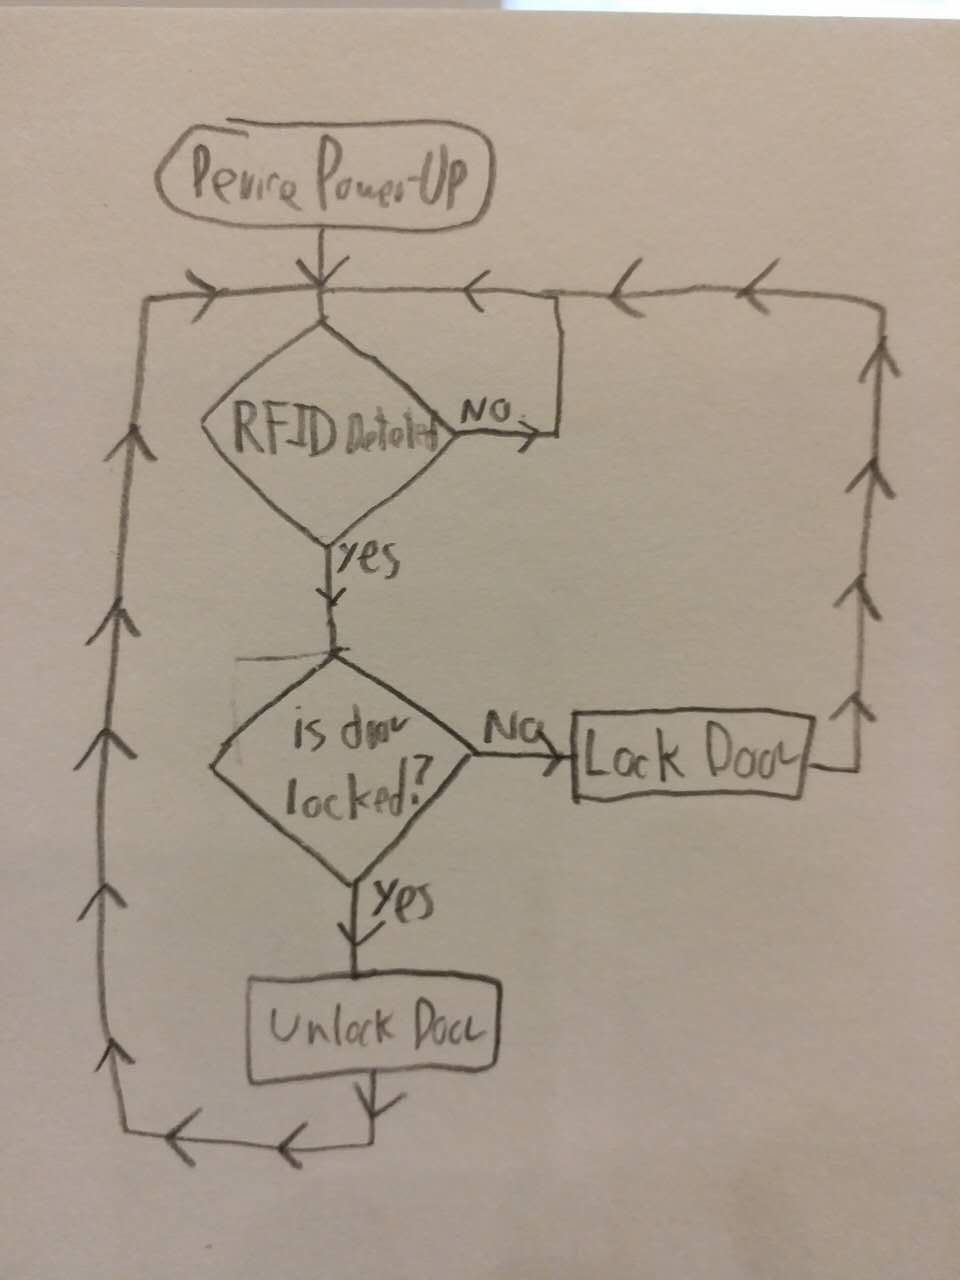 Device Power-Up
RFID Detected
NO
yes
is door
locked?
No
Lock Door
yes
Unlock Door